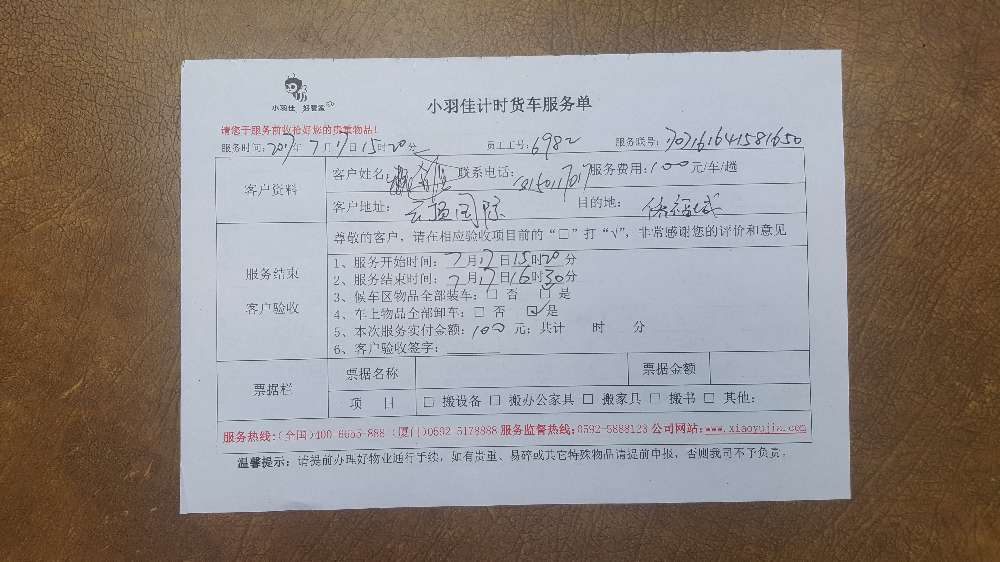 小羽佳 好管家
小羽佳计时货车服务单
请您于服务前收拾好您的贵重物品!
服务时间:2017年7月17日15时20分 员工工号:6982 服务联号:
客户资料
客户姓名: 联系电话: 服务费用:100元/车/趟
客户地址: 国际 目的地:
尊敬的客户,请在相应验收项目前的“□”打“√”,非常感谢您的评价和意见
服务结束
客户验收
1、服务开始时间:7月17日15时20分
2、服务结束时间:7月17日16时30分
3、候车区物品全部装车:□ 否 □ 是
4、车上物品全部卸车:□ 否 ☑是
5、本次服务实付金额:100 元;共计 时 分
6、客户验收签字:
票据栏
票据名称 票据金额
项 目 □ 搬设备 □ 搬办公家具 □ 搬家具 □ 搬书 □ 其他:
服务热线:(全国)400-6655-888 (厦门)0592-5178888 服务监督热线:0592-5888123 公司网站:www.xiaoyujia.com
温馨提示:请提前办理好物业通行手续,如有贵重、易碎或其它特殊物品请提前申报,否则我司不予负责。